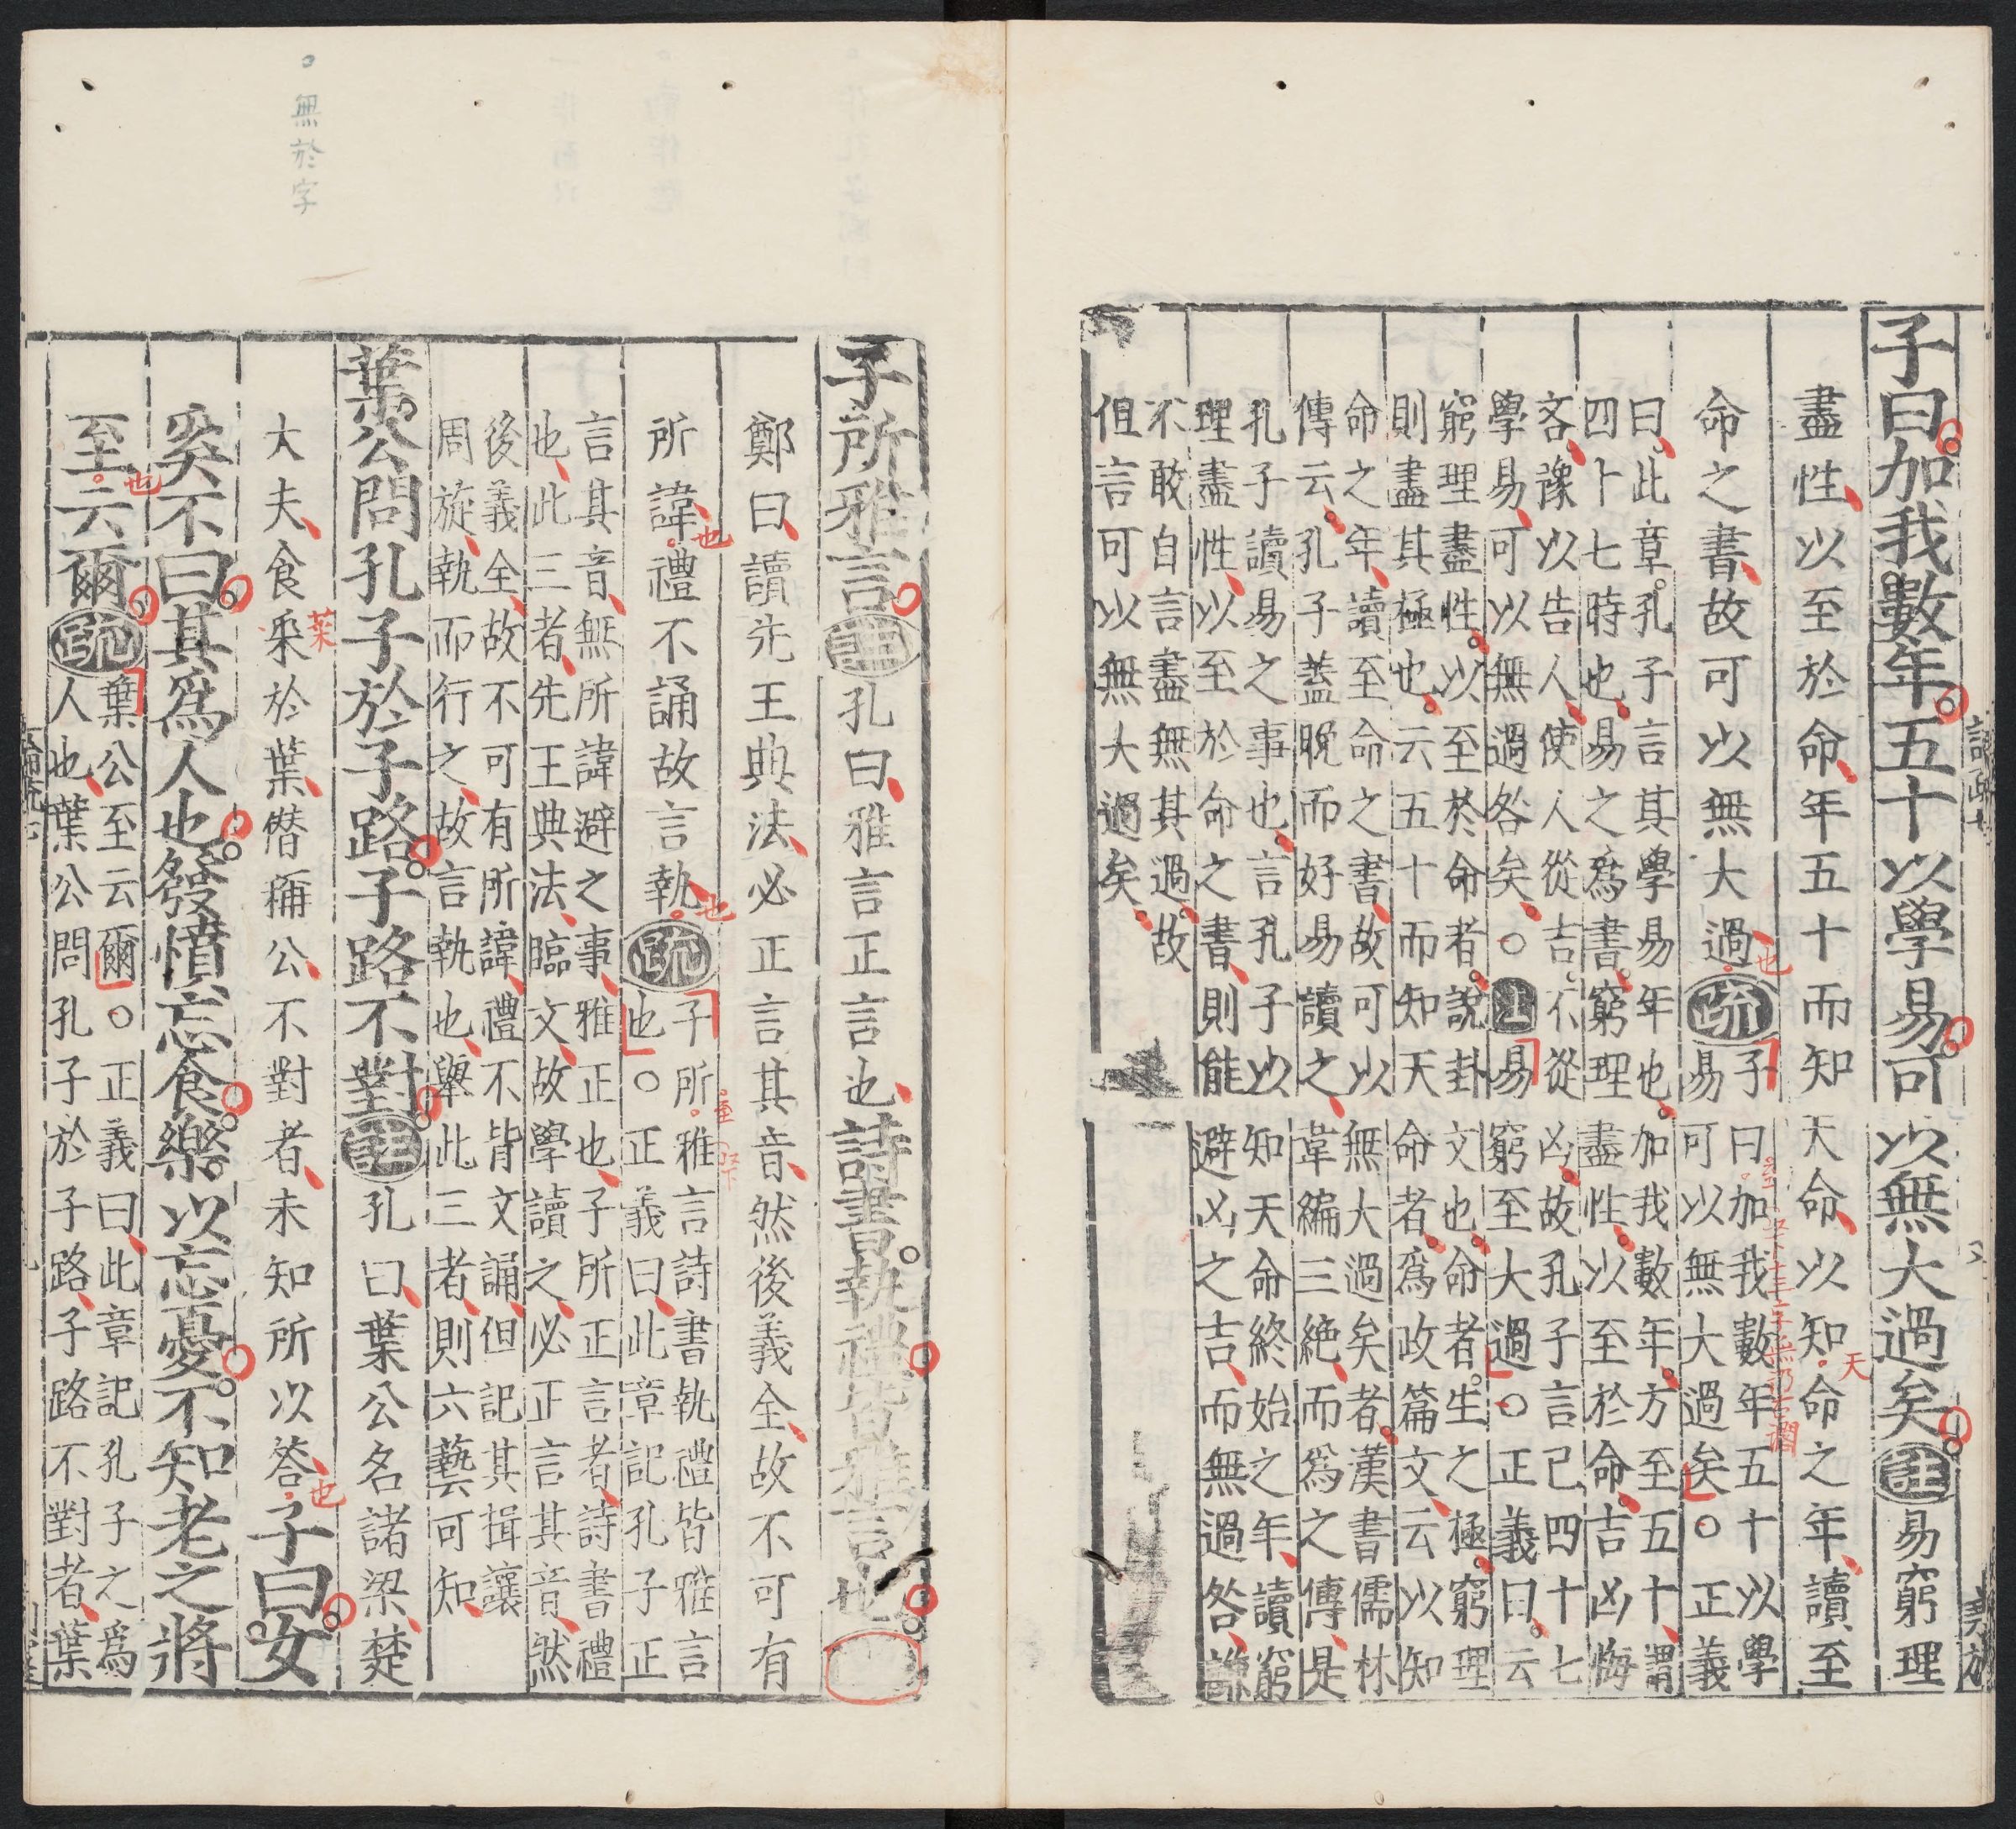 子曰加我數年五十以學易可以無大過矣註易窮理
盡性以至於命年五十而知天命以知命之年讀至
命之書故可以無大過疏子曰加我數年五十以學
易可以無大過矣○正義
曰此章孔子言其學易年也加我數年方至五十謂
四十七時也易之為書窮理盡性以至於命吉凶悔
吝豫以告人使人從吉不從凶故孔子言己四十七
學易可以無過咎矣○注易窮至大過○正義曰云
窮理盡性以至於命者說卦文也命者生之極窮理
則盡其極也云五十而知天命者為政篇文云以知
命之年讀至命之書故可以無大過矣者漢書儒林
傳云孔子蓋晚而好易讀之韋編三絕而為之傳是
孔子讀易之事也言孔子以知天命終始之年讀窮
理盡性以至於命之書則能避凶之吉而無過咎謙
不敢自言盡無其過故
但言可以無大過矣
子所雅言註孔曰雅言正言也詩書執禮皆雅言也
鄭曰讀先王典法必正言其音然後義全故不可有
所諱禮不誦故言執疏子所雅言詩書執禮皆雅言
也○正義曰此章記孔子正
言其音無所諱避之事雅正也子所正言者詩書禮
也此三者先王典法臨文故學讀之必正言其音然
後義全故不可有所諱禮不皆文誦但記其揖讓
周旋執而行之故言執也舉此三者則六藝可知
葉公問孔子於子路子路不對註孔曰葉公名諸梁楚
大夫食采於葉僣稱公不對者未知所以荅子曰女
奚不曰其為人也發憤忘食樂以忘憂不知老之將
至云爾疏葉公至云爾○正義曰此章記孔子之為
人也葉公問孔子於子路子路不對者葉
無於字
也
天
也
也
葉
也
也